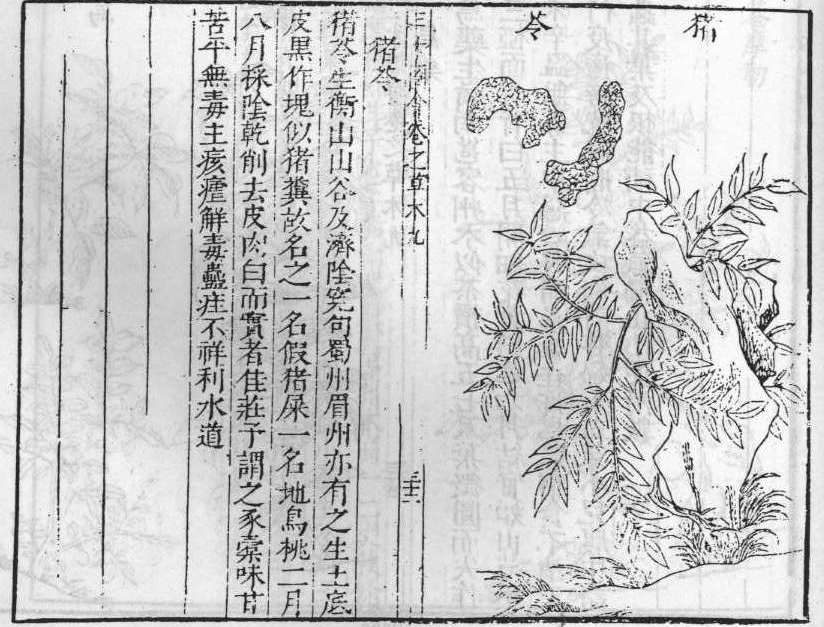 猪苓
三才圖會卷之草木九
三十二
猪苓
猪苓生衡山山谷及濟陰冤句蜀州眉州亦有之生土底
皮黑作塊似猪糞故名之一名假猪屎一名地烏桃二月
八月採陰乾削去皮肉白而實者佳莊子謂之豕橐味甘
苦平無毒主痎瘧解毒蠱疰不祥利水道